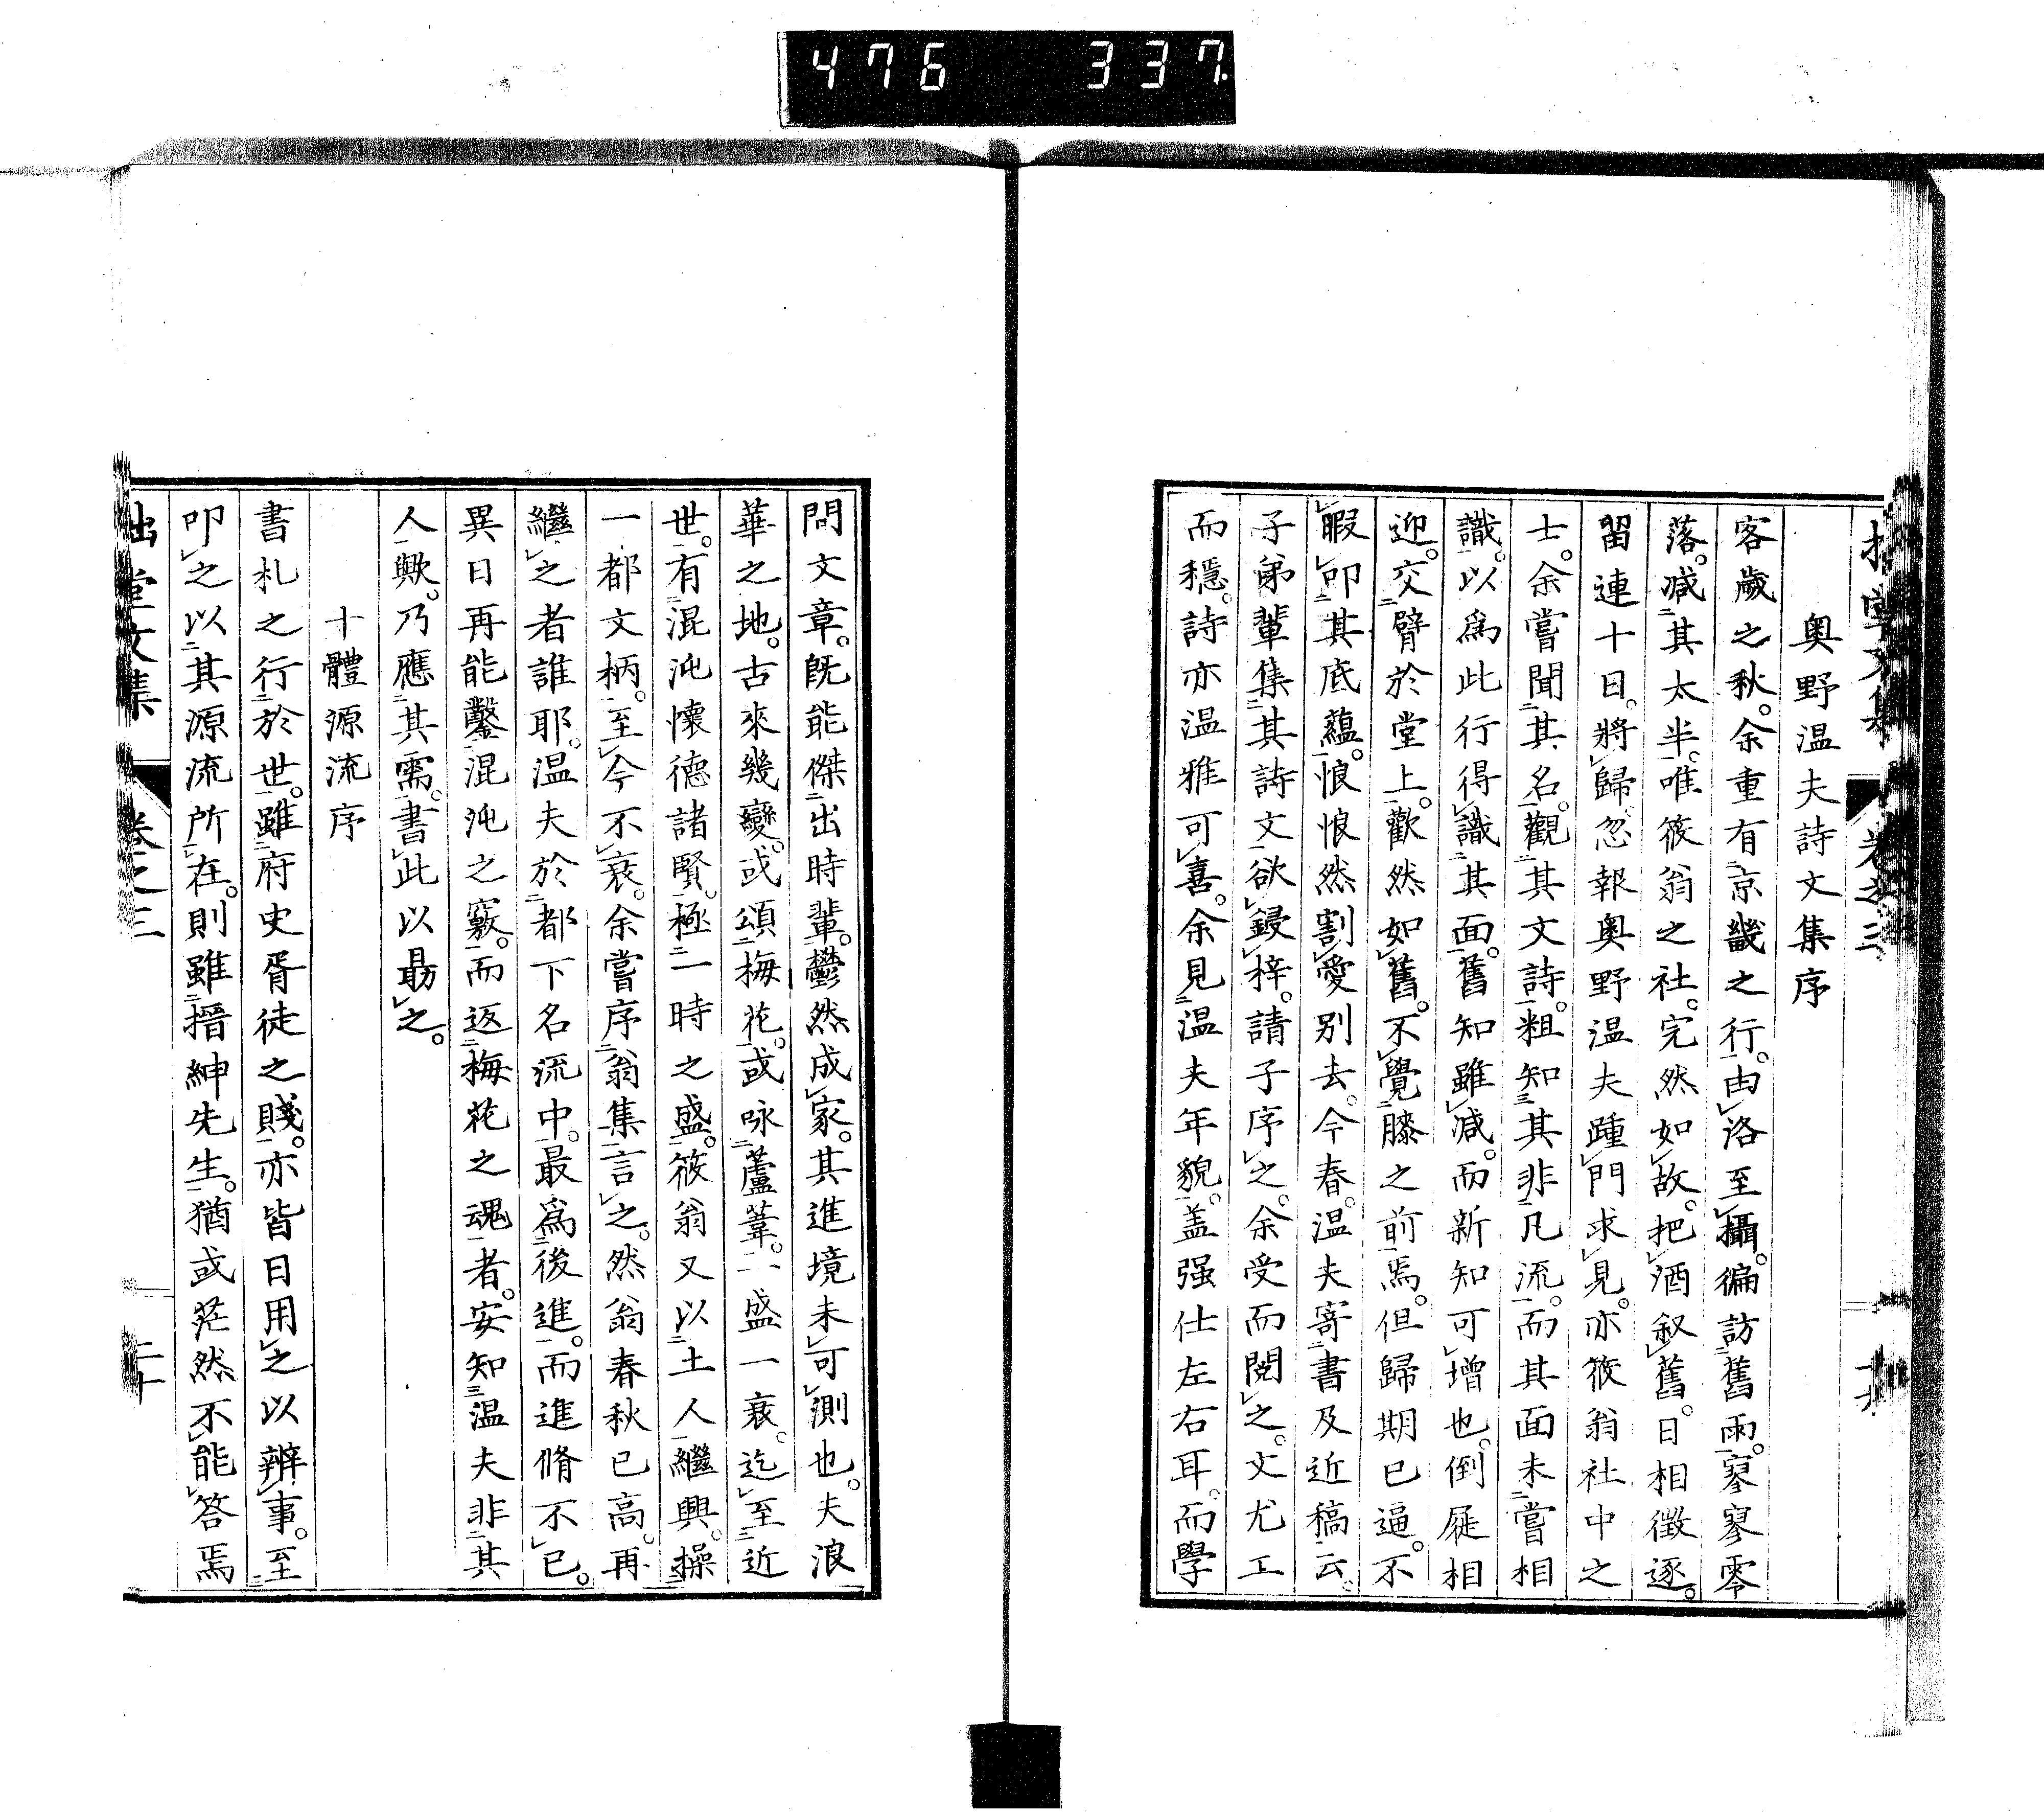 476 337
奥野温夫詩文集序
客歲之秋。余重有京畿之行。由洛至攝。徧訪舊雨。寥寥零
落。減其太半。唯筱翁之社。完然如故。把酒叙舊。日相徵逐。
留連十日。將歸。忽報奥野温夫踵門求見。亦筱翁社中之
士。余嘗聞其名。觀其文詩。粗知其非凡流。而其面未嘗相
識。以爲此行得識其面。舊知雖减。而新知可增也。倒屣相
迎。交臂於堂上。歡然如舊。不覺膝之前焉。但歸期已逼。不
暇叩其底蘊。悢悢然割愛別去。今春。温夫寄書及近稿云。
子弟輩集其詩文。欲鋟梓。請子序之。余受而閱之。文尤工
而穩。詩亦温雅可喜。余見温夫年貌。盖强仕左右耳。而學
問文章。旣能傑出時輩。鬱然成家。其進境未可測也。夫浪
華之地。古來幾變。或頌梅花。或咏蘆葦。一盛一衰。迄至近
世。有混沌懷德諸賢。極一時之盛。筱翁又以土人繼興。操
一都文柄。至今不衰。余嘗序翁集言之。然翁春秋已高。再
繼之者誰耶。温夫於都下名流中。最爲後進。而進脩不已。
異日再能鑿混沌之竅。而返梅花之魂者。安知温夫非其
人歟。乃應其需。書此以勗之。
十體源流序
書札之行於世。雖府史胥徒之賤。亦皆日用之以辨事。至
叩之以其源流所在。則雖搢紳先生。猶或茫然不能答焉
拙堂文集 卷之三 二十